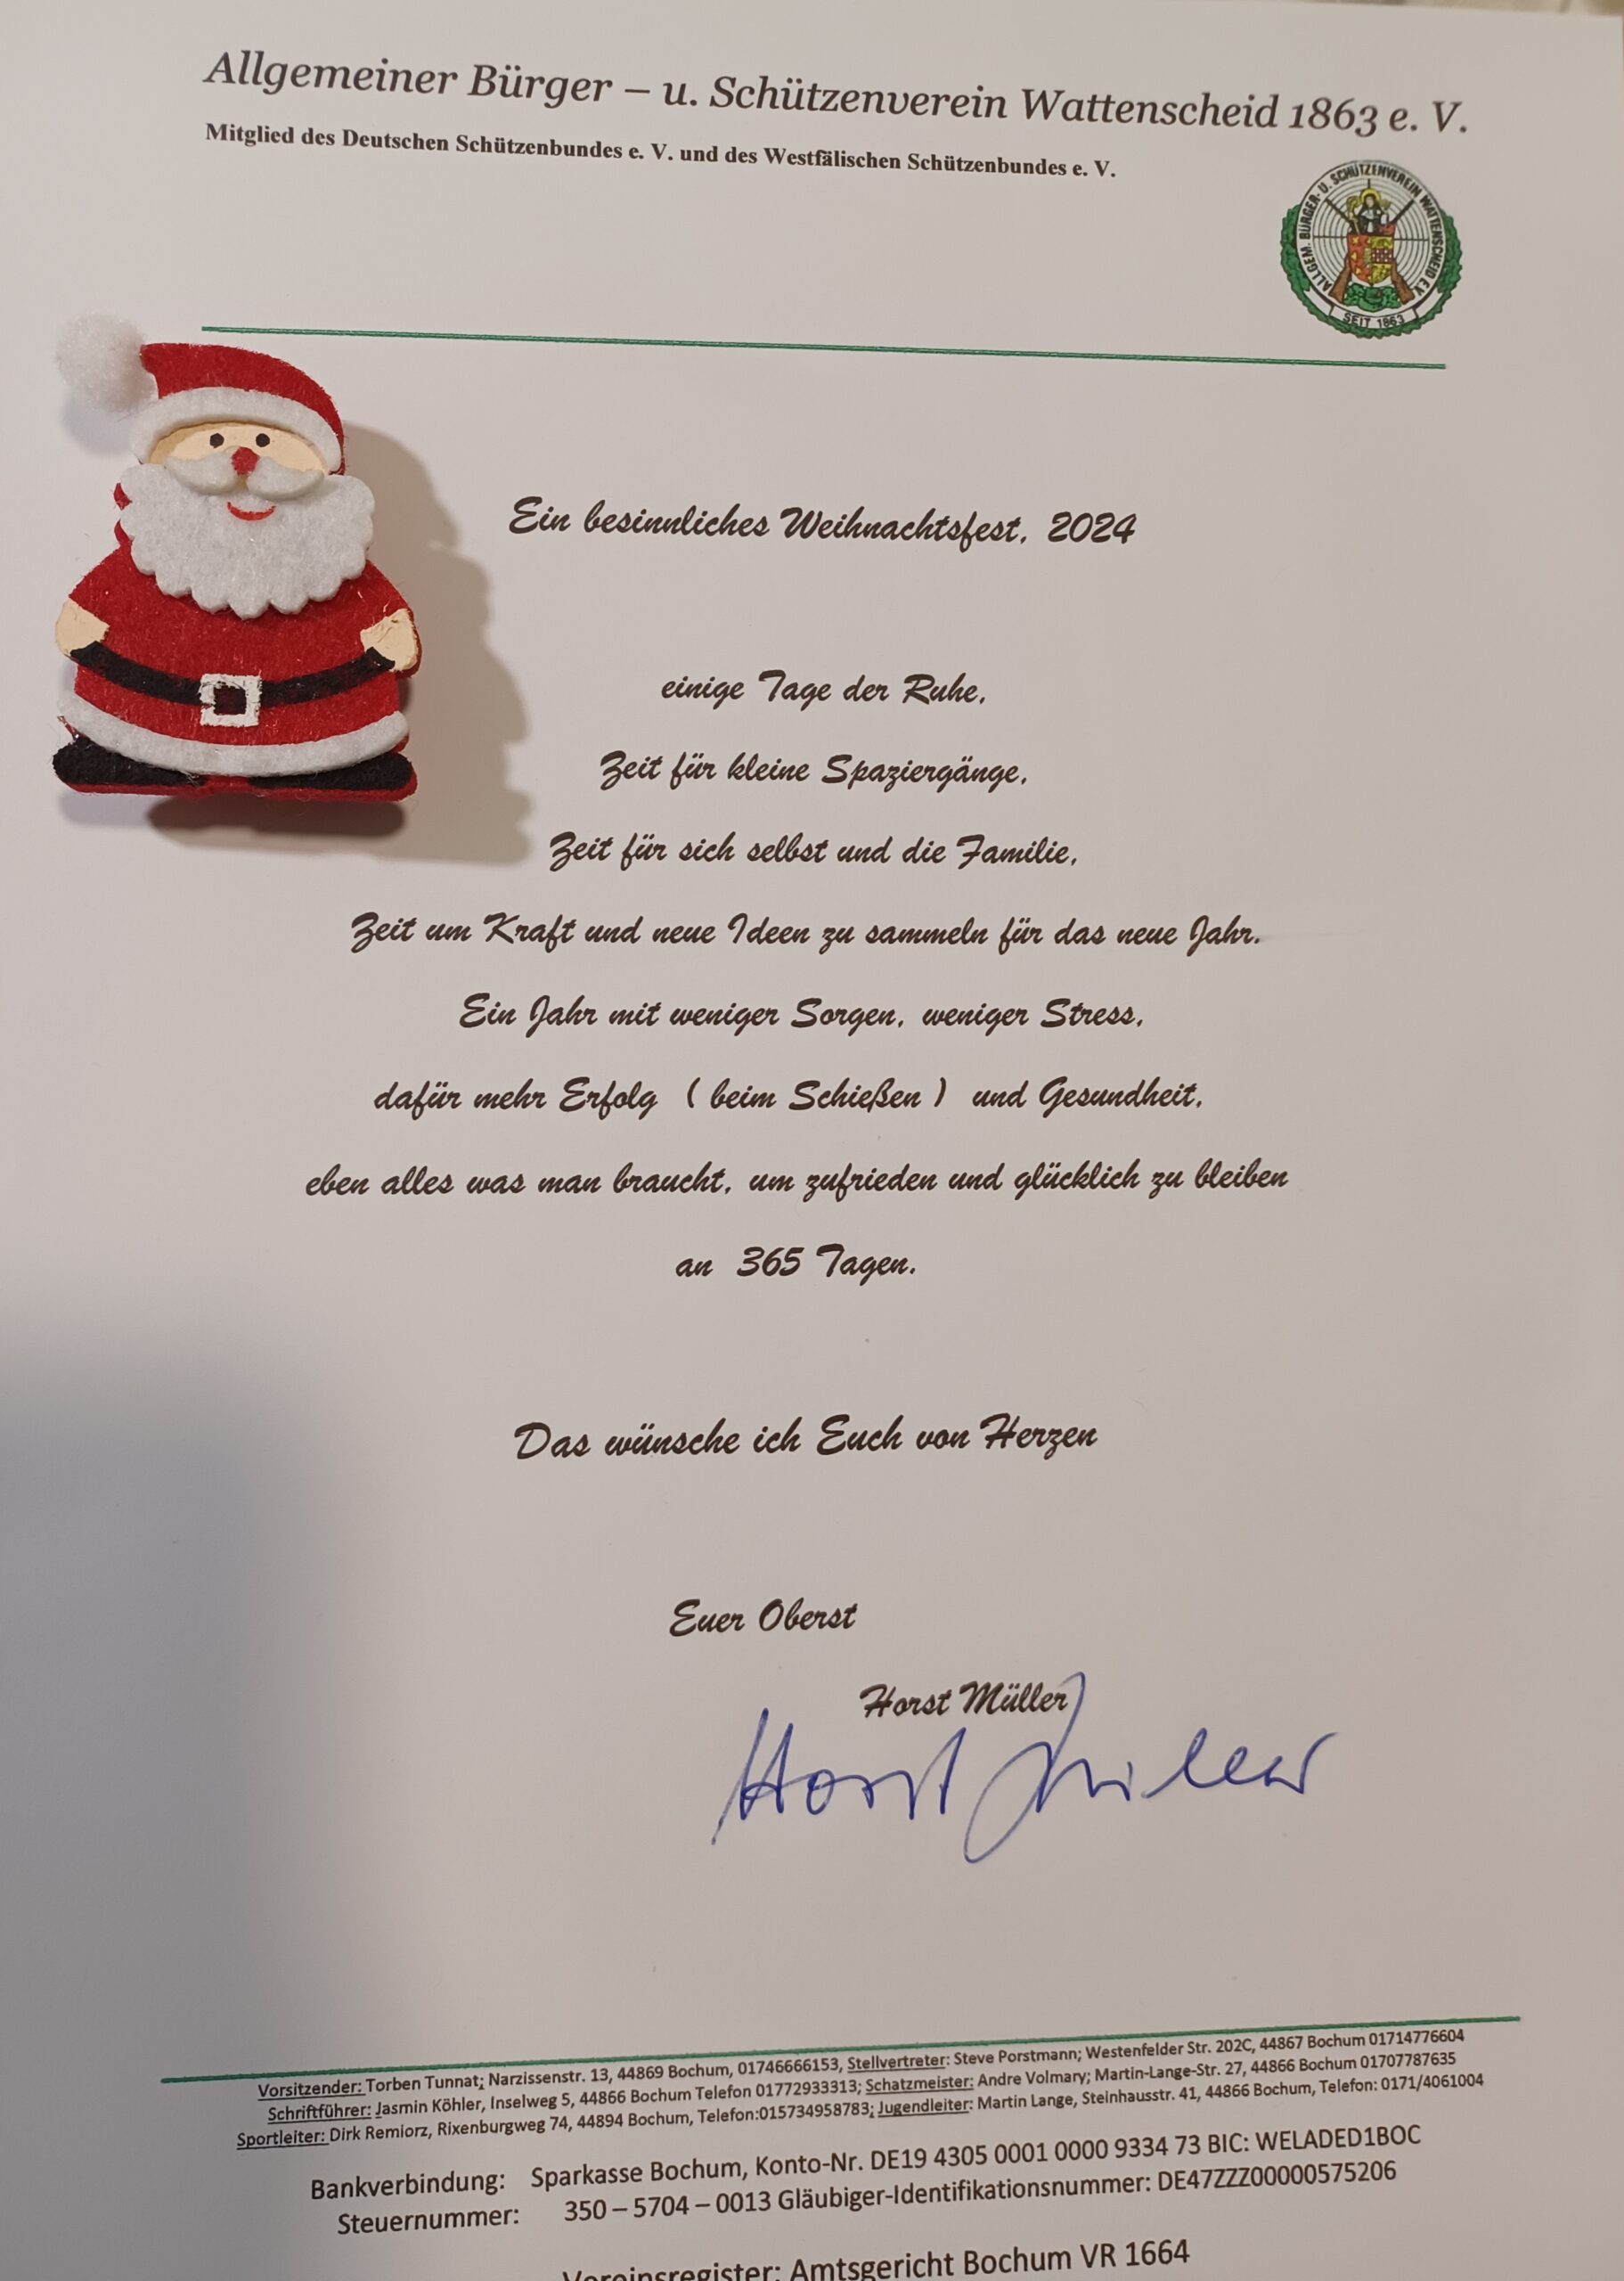 Allgemeiner Bürger – u. Schützenverein Wattenscheid 1863 e. V.
Mitglied des Deutschen Schützenbundes e. V. und des Westfälischen Schützenbundes e. V.
ALLGEM. BÜRGER- U. SCHÜTZENVEREIN WATTENSCHEID E.V.
SEIT 1863
Ein besinnliches Weihnachtsfest, 2024
einige Tage der Ruhe,
Zeit für kleine Spaziergänge,
Zeit für sich selbst und die Familie,
Zeit um Kraft und neue Ideen zu sammeln für das neue Jahr.
Ein Jahr mit weniger Sorgen, weniger Stress,
dafür mehr Erfolg ( beim Schießen ) und Gesundheit,
eben alles was man braucht, um zufrieden und glücklich zu bleiben
an 365 Tagen.
Das wünsche ich Euch von Herzen
Euer Oberst
Horst Müller
Horst Müller
Vorsitzender: Torben Tunnat; Narzissenstr. 13, 44869 Bochum, 01746666153, Stellvertreter: Steve Porstmann; Westenfelder Str. 202C, 44867 Bochum 01714776604
Schriftführer: Jasmin Köhler, Inselweg 5, 44866 Bochum Telefon 01772933313; Schatzmeister: Andre Volmary; Martin-Lange-Str. 27, 44866 Bochum 01707787635
Sportleiter: Dirk Remiorz, Rixenburgweg 74, 44894 Bochum, Telefon:015734958783; Jugendleiter: Martin Lange, Steinhausstr. 41, 44866 Bochum, Telefon: 0171/4061004
Bankverbindung: Sparkasse Bochum, Konto-Nr. DE19 4305 0001 0000 9334 73 BIC: WELADED1BOC
Steuernummer: 350 – 5704 – 0013 Gläubiger-Identifikationsnummer: DE47ZZZ00000575206
Vereinsregister: Amtsgericht Bochum VR 1664